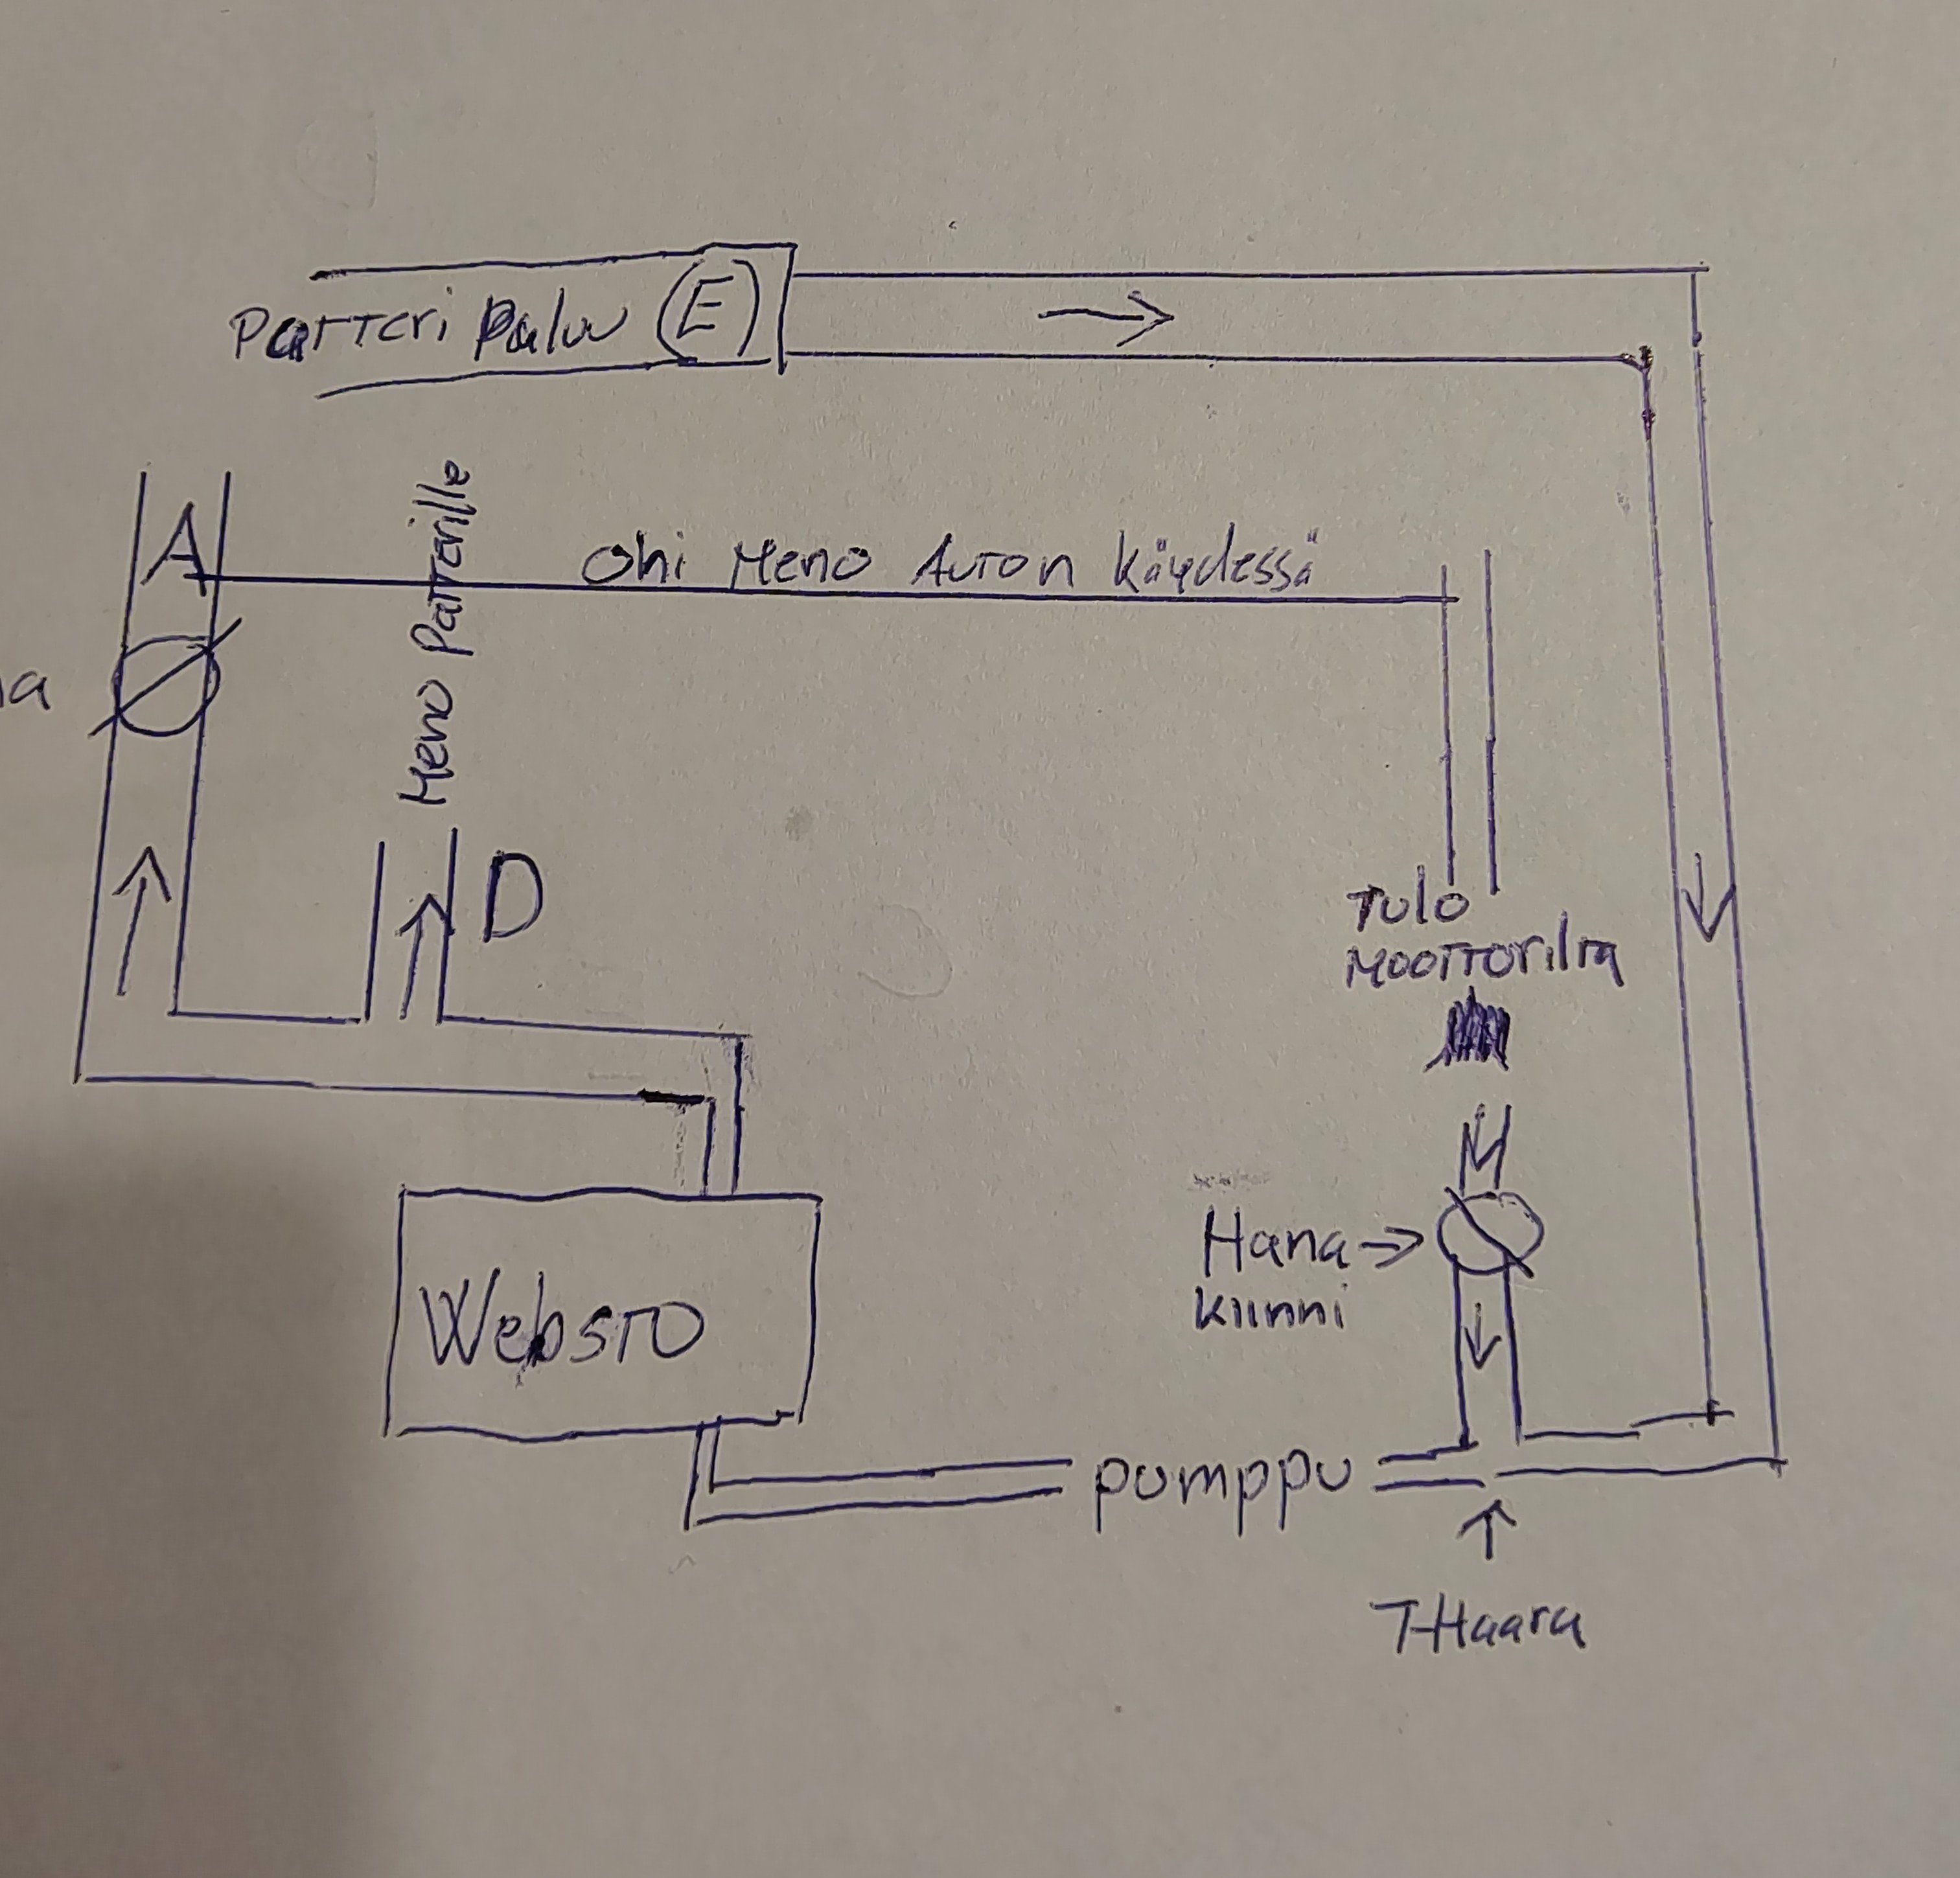 Patteri Paluu (E)
A
Meno Patterille
Ohi Meno Auton Käydessä
D
Tulo
Moottorilta
Hana
kiinni
Websto
pumppu
T-Haara